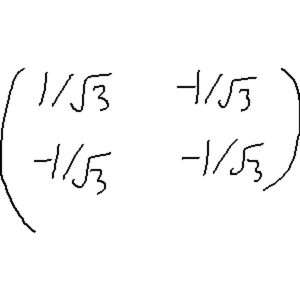 ( 1/√3 -1/√3
-1/√3 -1/√3 )